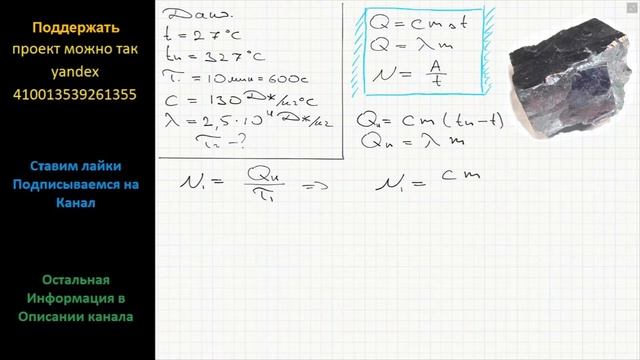 Поддержать
проект можно так
yandex
410013539261355
Ставим лайки
Подписываемся на
Канал
Остальная
Информация в
Описании канала
Дано.
t = 27°C
tп = 327°C
τ₁ = 10 мин = 600 с
C = 130 Дж/кг°C
λ = 2,5·10⁴ Дж/кг
τ₂ - ?
Q = cmΔt
Q = λm
N = A/t
Qн = cm(tп-t)
Qп = λm
N₁ = Qн/τ₁ =>
N₁ = cm